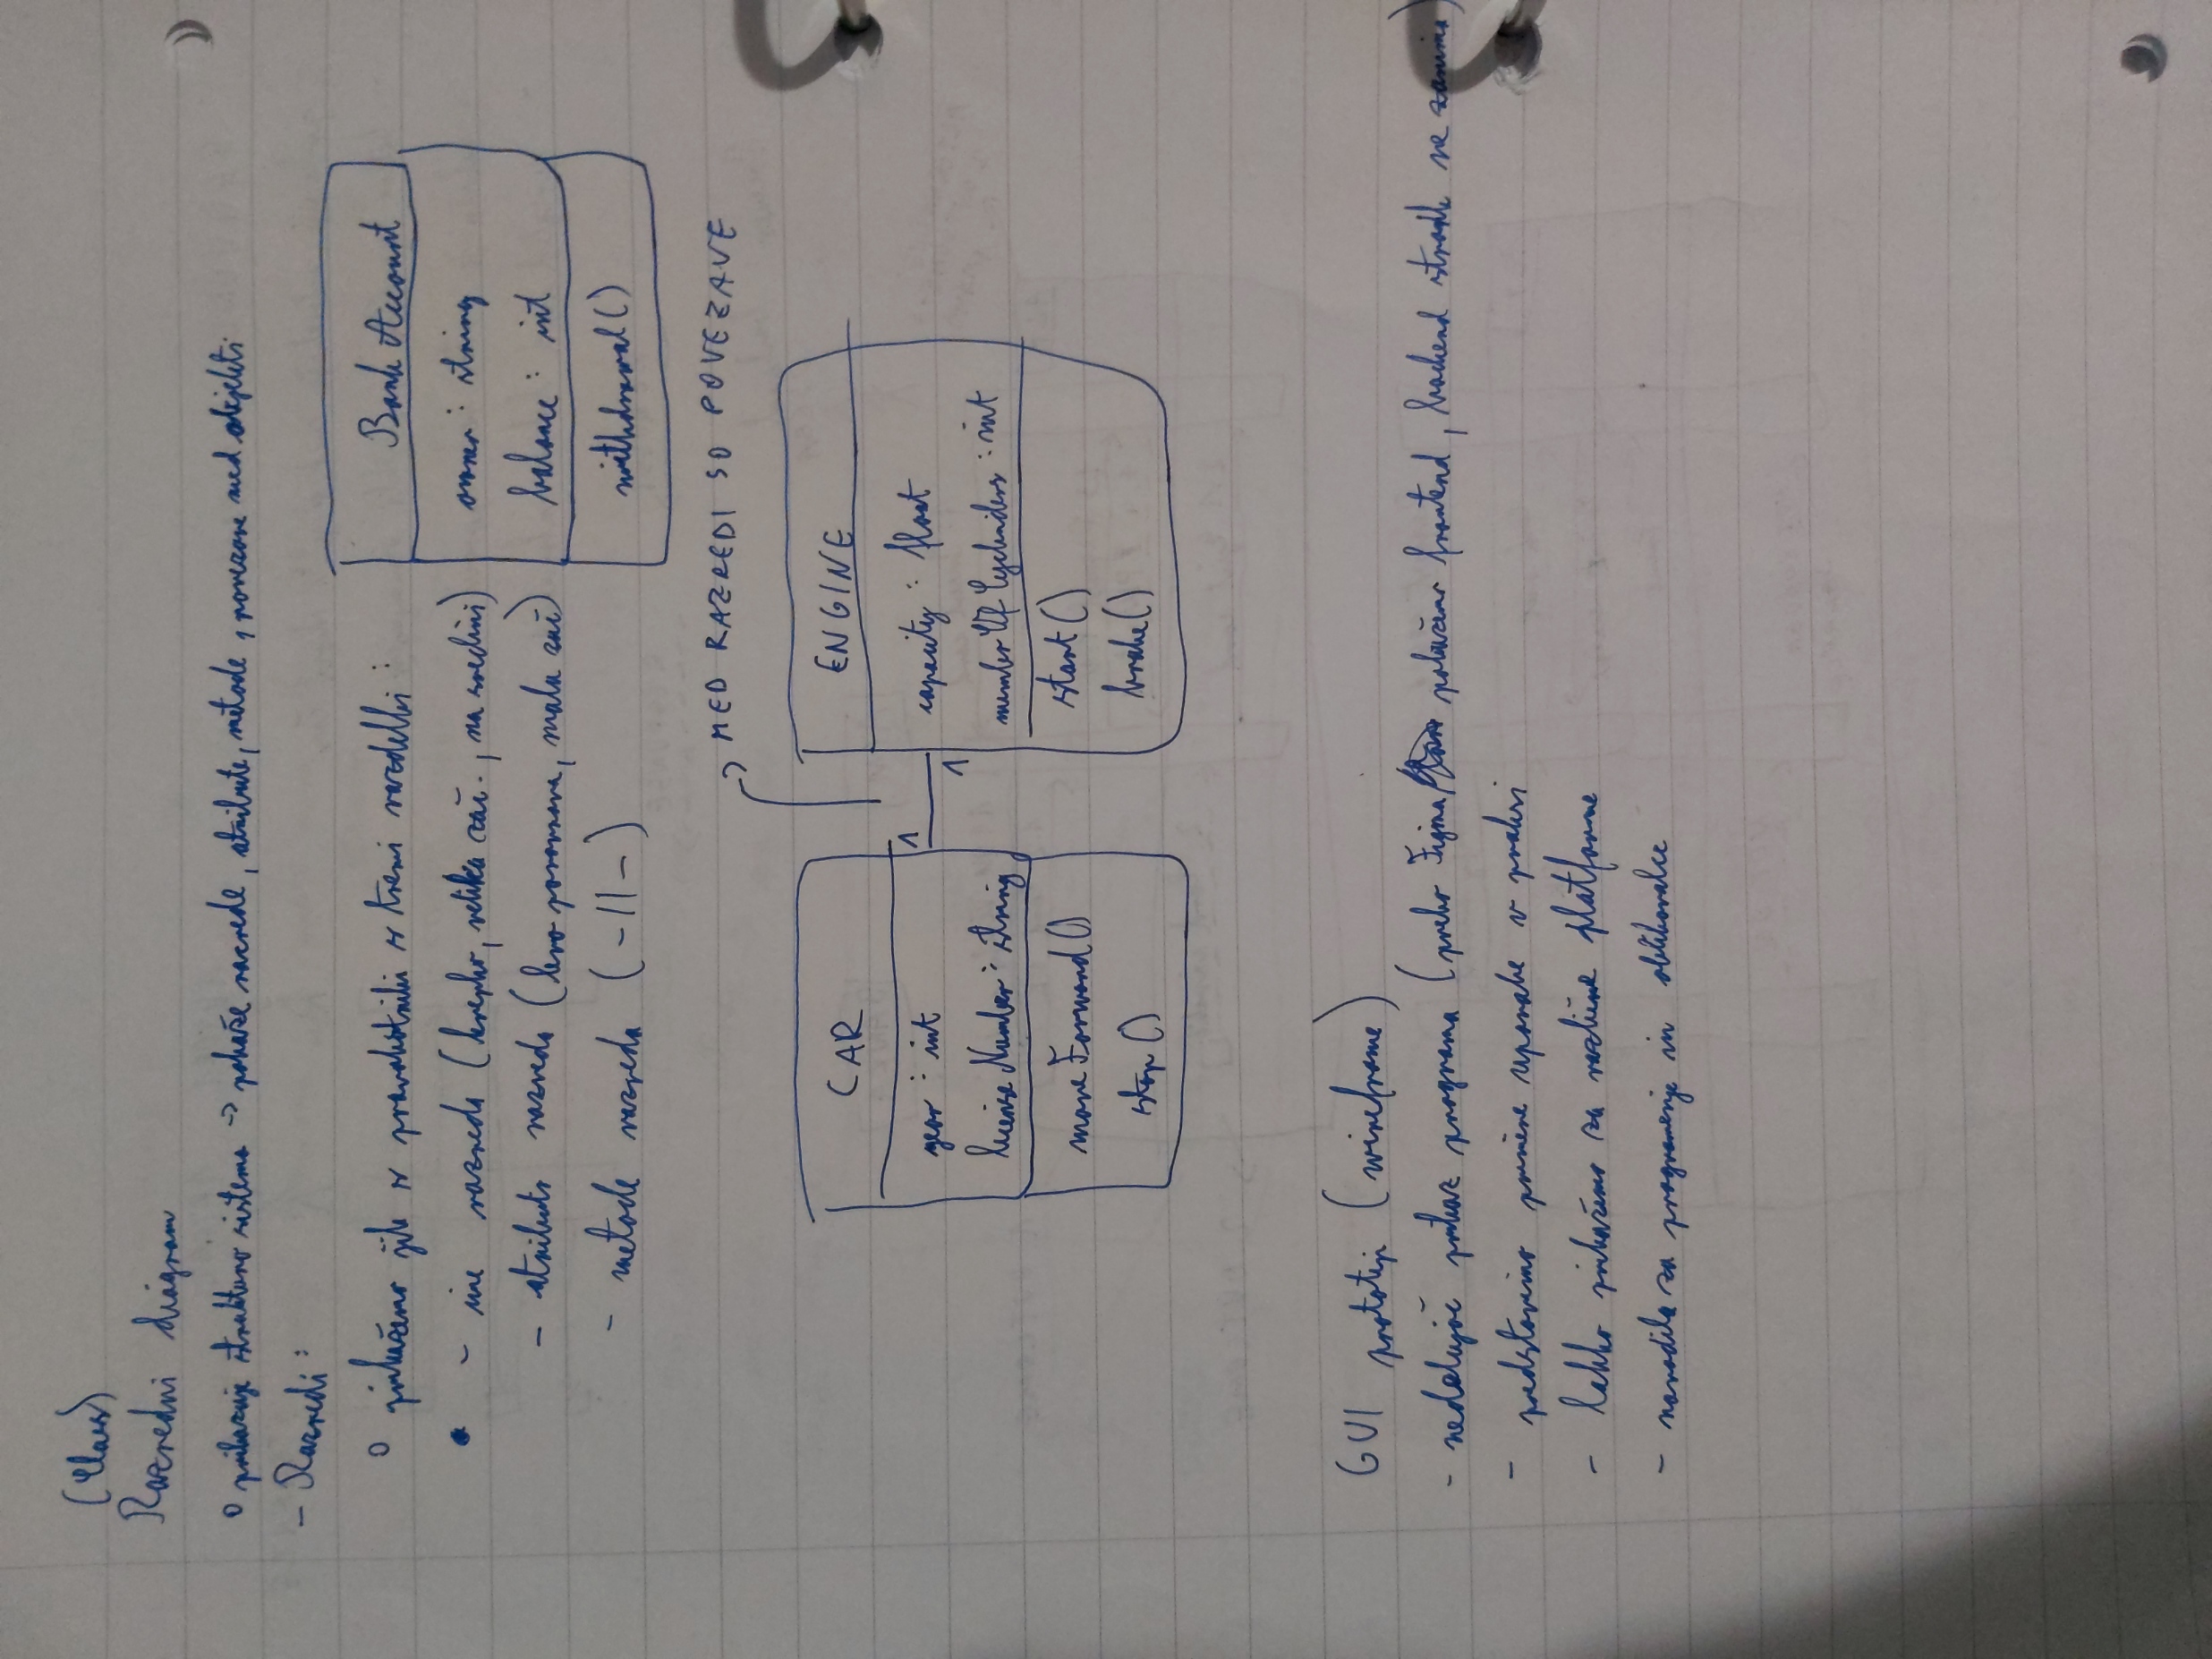 (Class)
Razredni diagram
o prikazuje strukturo sistema -> pokaže razrede, atribute, metode, povezave med objekti
- Razredi:
o prikažemo jih s pravokotniki s tremi razdelki:
- ime razreda (krepko, velika zač., na sredini)
- atributi razreda (levo poravnava, mala zač)
- metode razreda (-||-)
Bank Account
owner: string
balance: int
withdrawal()
-> MED RAZREDI SO POVEZAVE
CAR
year: int
licenseNumber: string
moveForward()
stop()
1
1
ENGINE
capacity: float
numberOfCyclinders: int
start()
brake()
GUI prototip (wireframe)
- nedelujoč prikaz programa (preko Figma pokažemo frontend, backend strank ne zanima)
- predstavimo primere uporabe v praksi
- lahko prikažemo za različne platforme
- navodila za programerje in oblikovalce